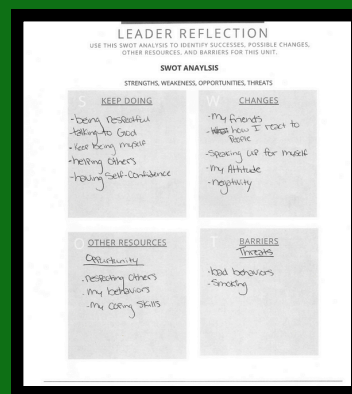 LEADER REFLECTION
USE THIS SWOT ANALYSIS TO IDENTIFY SUCCESSES, POSSIBLE CHANGES,
OTHER RESOURCES, AND BARRIERS FOR THIS UNIT.
SWOT ANAYLSIS
STRENGTHS, WEAKNESS, OPPORTUNITIES, THREATS
S KEEP DOING
-being respectful
-talking to God
-keep being myself
-helping others
-having Self-Confidence
W CHANGES
-my friends
- how I react to
People
-speaking up for myself
-my Attitude
-negativity
O OTHER RESOURCES
Oppurtunity
-respecting others
-my behaviors
-my coping skills
T BARRIERS
Threats
-bad behaviors
-smoking